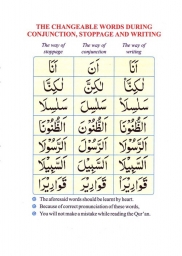 THE CHANGEABLE WORDS DURING
CONJUNCTION, STOPPAGE AND WRITING
The way of stoppage The way of conjunction The way of writing
اَنَا اَنَ اَنَا
لٰكِنَّا لٰكِنَّ لٰكِنَّا
سَلٰسِلَا سَلٰسِلَ سَلٰسِلَا
الظُّنُوْنَا الظُّنُوْنَ الظُّنُوْنَا
الرَّسُوْلَا الرَّسُوْلَ الرَّسُوْلَا
السَّبِيْلَا السَّبِيْلَ السَّبِيْلَا
قَوَارِيْرَا قَوَارِيْرَ قَوَارِيْرَا
The aforesaid words should be learnt by heart.
Because of correct pronunciation of these words,
You will not make a mistake while reading the Qur'an.